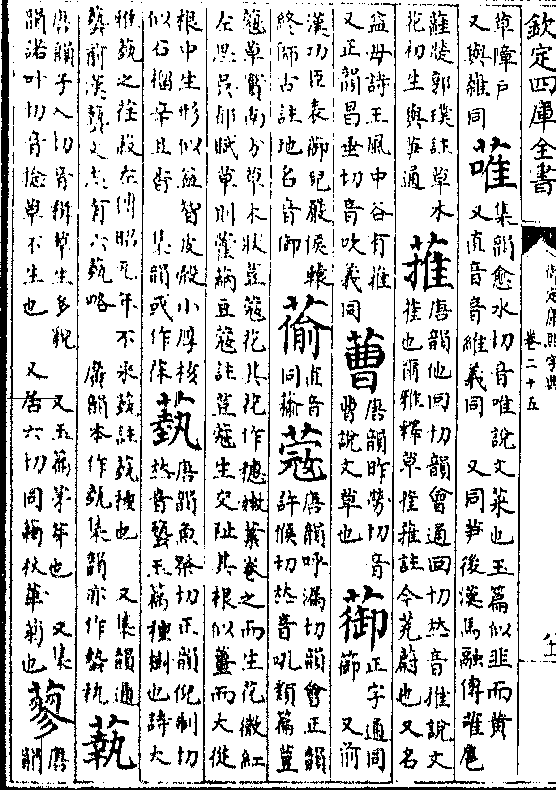 欽定四庫全書
御定康熙字典
卷二十五
草障戶
又與維同
蓶
集韻愈水切音唯說文菜也玉篇似韭而黃
又直音音維義同 又同笋後漢馬融傳蓶扈
蓶葵郭璞註草木
花初生與笋通
蓷
唐韻他回切韻會通回切𠀤音推說文
萑也爾雅釋草萑蓷註今茺蔚也又名
益母詩王風中谷有蓷
又正韻昌垂切音吹義同
蓸
唐韻昨勞切音
曹說文草也
蓹
正字通同
篽 又前
漢功臣表蓹兒嚴侯轅
終師古註地名音御
直音
同
蔻
唐韻呼漏切韻會正韻
許候切𠀤音吼類篇荳
蔻草實南方草木狀荳蔻花其花作穗嫩葉卷之而生花微紅
左思吳都賦草則藿蒳豆蔻註荳蔻生交趾其根似薑而大從
根中生形似益智皮殼小厚核
似石榴辛且香 集韻或作
蓺
唐韻魚祭切正韻倪制切
𠀤音藝玉篇種樹也詩大
雅蓺之荏菽左傳昭元年不采蓺註蓺種也 又集韻通
藝前漢藝文志有六蓺略 廣韻本作埶集韻亦作藝秇
蓻
唐韻子入切音緝草生多貌 又玉篇茅芽也 又集
韻諾叶切音捻草不生也 又居六切同蘜秋華菊也
蓼
唐
韻